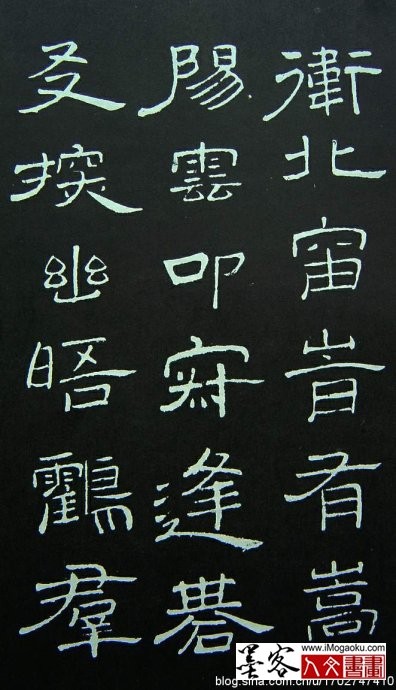 衛北宙旹有嵩
陽雲叩寂逢碁
叟探幽晤鸖羣
墨客
www.iMogaoku.com
人文書畫
blog.sina.com.cn/u/1702747410